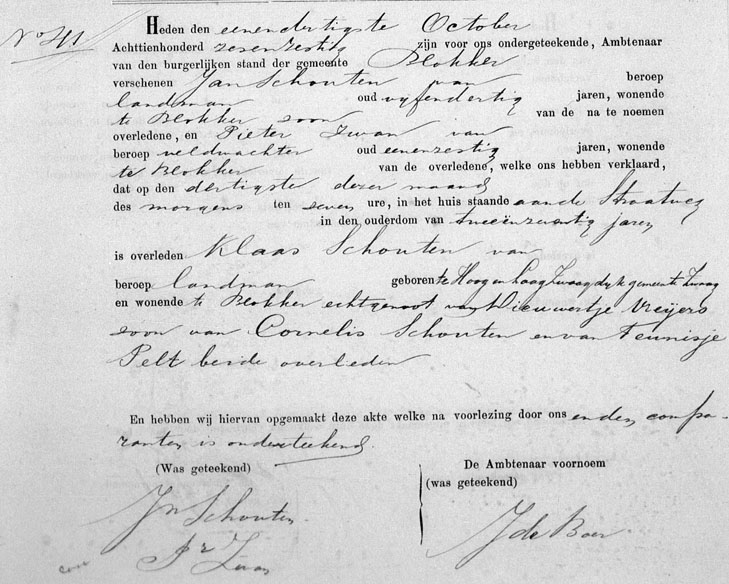 No 41
Heden den eenendertigste October
Achttienhonderd zevenzestig zijn voor ons ondergeteekende, Ambtenaar
van den burgerlijken stand der gemeente Blokker
verschenen Jan Schouten van beroep
landman oud vijfendertig jaren, wonende
te Blokker zoon van de na te noemen
overledene, en Pieter Zwan van
beroep veldwachter oud eenenzestig jaren, wonende
te Blokker van de overledene, welke ons hebben verklaard,
dat op den dertigste dezer maand
des morgens ten zeven ure, in het huis staande aan de Straatweg
in den ouderdom van tweeënzeventig jaren
is overleden Klaas Schouten van
beroep landman geboren te Hoog en laag Zwaagdijk gemeente Zwaag
en wonende te Blokker echtgenoot van Dieuwertje Vreijers
zoon van Cornelis Schouten en van Teunisje
Pelt beide overleden
En hebben wij hiervan opgemaakt deze akte welke na voorlezing door ons en den compa-
ranten is onderteekend
(Was geteekend)
De Ambtenaar voornoem
(was geteekend)
Jn Schouten
Pr Zwan
J de Boer